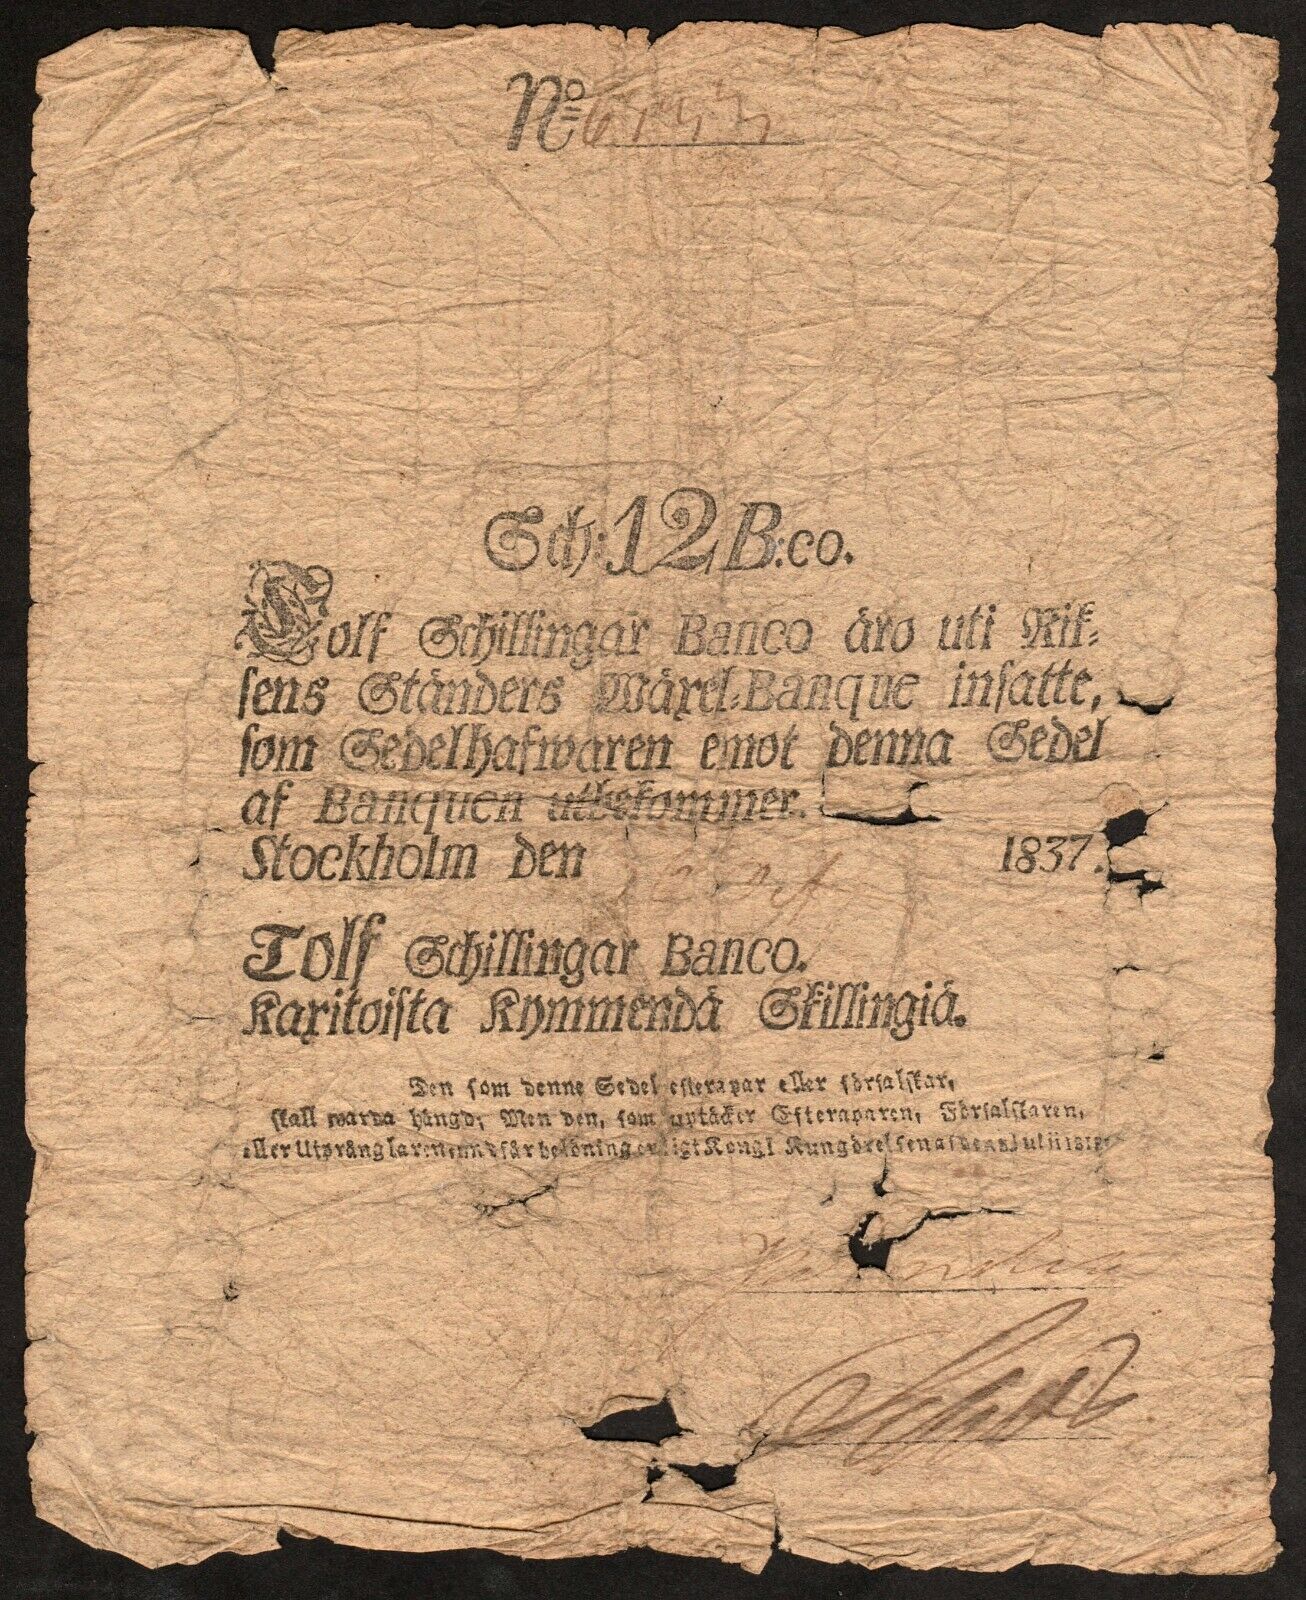 No
Sch: 12 B:co.
Tolf Schillingar Banco äro uti Rik=
sens Ständers Wäxel=Banque insatte,
som Sedelhafwaren emot denna Sedel
af Banquen utbekommer.
Stockholm den 1837.
Tolf Schillingar Banco.
Karitoista Kymmendä Skillingiä.
Den som denne Sedel efterapar eller förfalskar,
skall warda hängd; Men den, som uptäcker Efteraparen, Förfalskaren,
eller Utprånglaren, undfår belöning enligt Kongl Kungörelsen af den